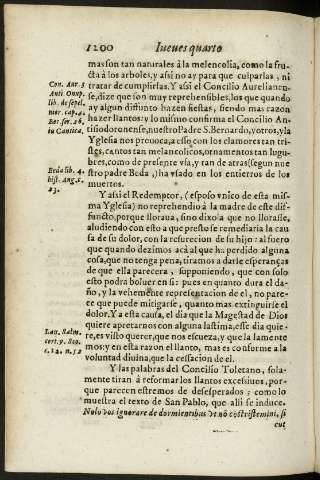 1200 Iueves quarto
mas son tan naturales à la melencolia, como la fru-
cta à los arboles, y assi no ay para que culparlas, ni
tratar de cumplirlas. Y assi el Concilio Aurelianen-
se, dize que son muy reprehensibles, los que quando
ay algun diffunto hazen fiestas, siendo mas razon
hazer llantos: y lo mismo confirma el Concilio An-
tisiodoronense, nuestro Padre S. Bernardo, y otros, y la
Yglesia nos prouoca, a esso, con los clamores tan tris-
tes, cantos tan melancolicos, ornamentos tan lugu-
bres, como de presente vsa, y tan de atras (segun nue
stro padre Beda,) ha vsado en los entierros de los
muertos.
Y assi el Redemptor, (esposo vnico de esta mis-
ma Yglesia) no reprehendio à la madre de este dif-
functo, porque lloraua, sino dixola que no llorasse,
aludiendo con esto a que presto se remediaria la cau
sa de su dolor, con la resureccion de su hijo: asi fuero
que quando dezimos acà al que ha perdido alguna
cosa, que no tenga pena, tiramos a darle esperanças
de que ella parecera, supponiendo, que con solo
esto podra boluer en si: pues en quanto dura el da-
ño, y la vehemente representacion de el, no pare-
ce que puede mitigarse, quanto mas extinguirse el
dolor. Y a esta causa, el dia que la Magestad de Dios
quiere apretarnos con alguna lastima, esse dia quie-
re, es visto querer, que nos escueza, y que la lamente
mos: y en esta razon el llanto, mas es conforme a la
voluntad diuina, que la cessacion de el.
Y las palabras del Concilio Toletano, sola-
mente tiran à reformar los llantos excessiuos, por-
que parecen estremos de desesperados: como lo
muestra el texto de San Pablo, que alli se induce.
Nolo vos ignorare de dormientibus vt nō cōtristemini, si
cut
Con. Aur. 3
Anti Onup.
lib. de sepel.
mor. cap. 4.
Ber. ser. 26.
in Cantica.
Beda lib. 4.
hist. Ang. c.
23.